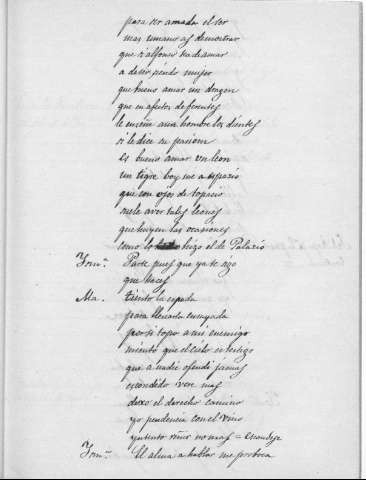 para ser amada el ser
mas umano as de mostrar
que si alfonso ha de amar
a de ser siendo muger
que bueno amar un dragon
que en afectos diferentes
le enseñe a un hombre los dientes
si le dice su pasion
es bueno amar un leon
un tigre boy me a espacio
que con ojos de topacio
suele aver tales leonas
que huyen las ocasiones
como lo hizo el de Palacio
Parte pues que ya te sigo
que haces
Ma. siento la espada
para llevarla ensayada
por si topo a mi enemigo
miento que el cielo es testigo
que a nadie ofendi jamas
escondido vere mas
dexo el derecho camino
yo pendencia con el vino
y intento reñir no mas =
El alma a hablar me provoca